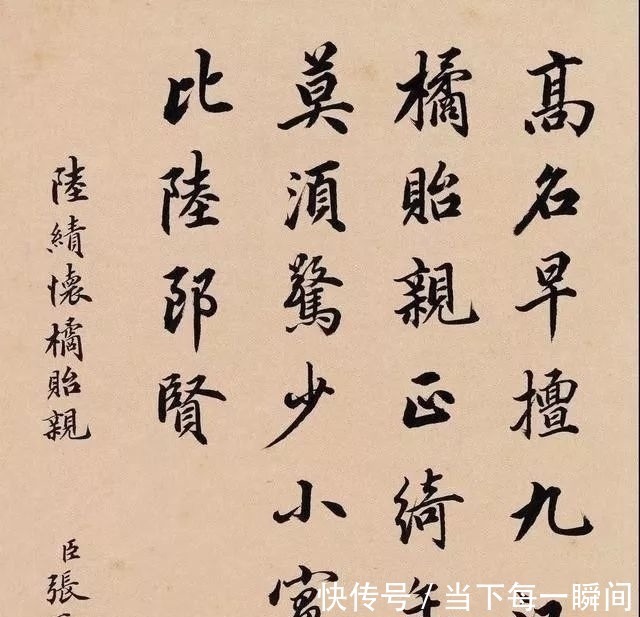 髙名早擅九
橘貽親正綺年
莫須驚少小
比陸郎賢
陸績懷橘貽親
臣張
快传号 / 当下每一瞬间